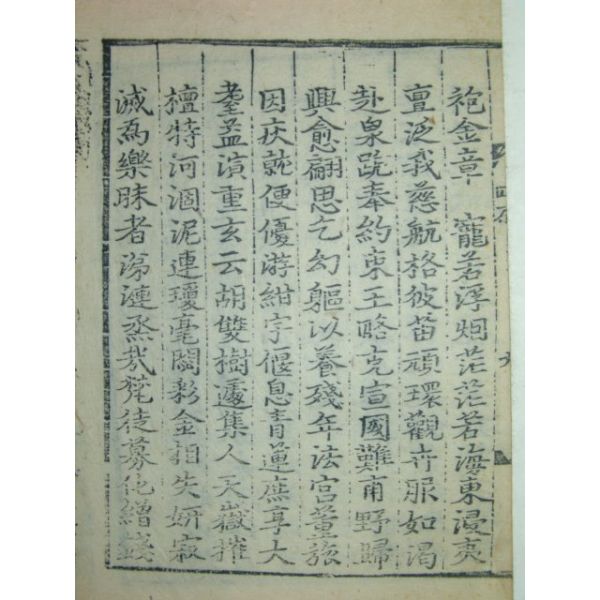 袍金章 寵若浮烟茫茫若海東浸夷
亶泛我慈航格彼苗頑環觀卉服如渴
赴泉跣奉約束王略克宣國難甫野歸
興愈翩思乞幻軀以養殘年法宮董旅
因疾就便優游紺宇偃息青蓮庶享大
耋孟濱重玄云胡雙樹遽集人天嶽摧
檀特河涸泥連瓊毫閟彩金相失妍寂
滅為樂昧者漣烝哉徒募化繒錢